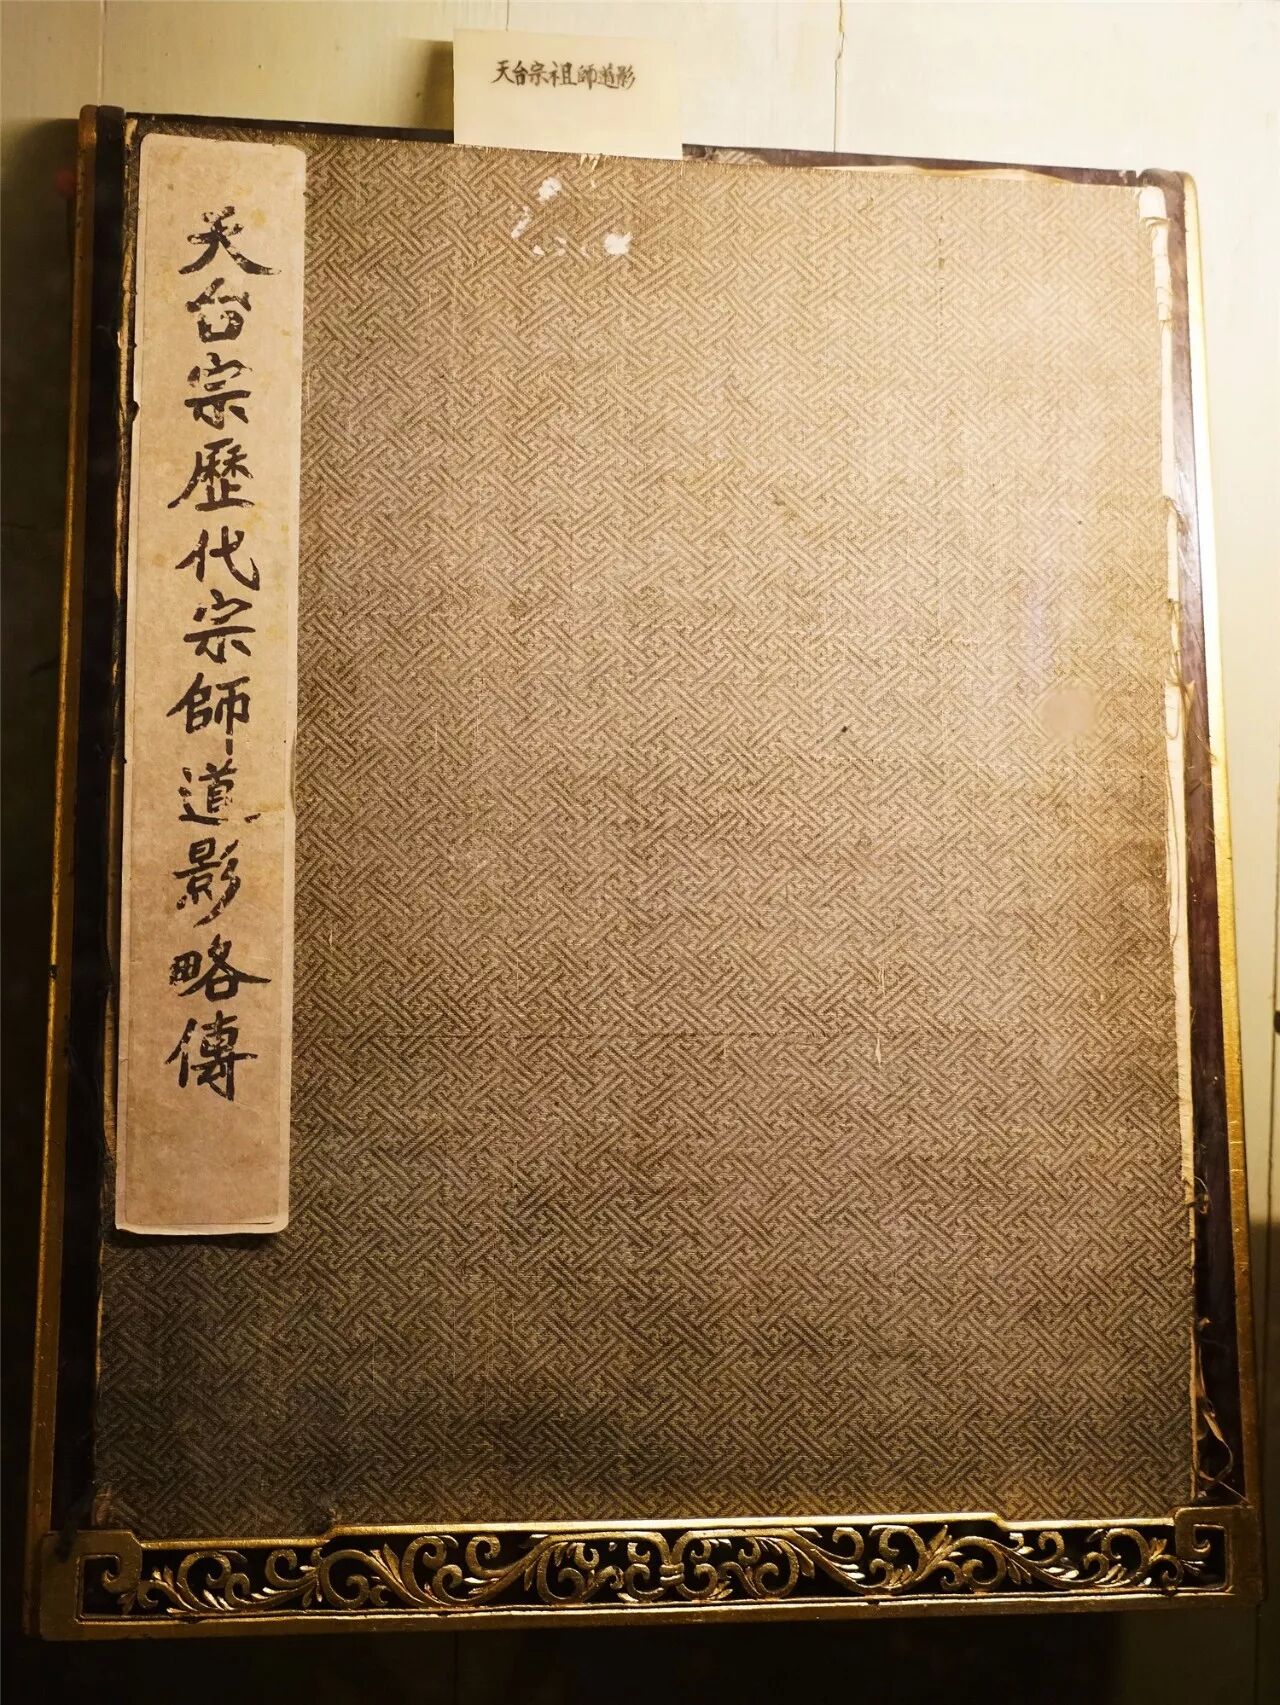 天台宗祖師道影
天台宗歷代宗師道影略傳